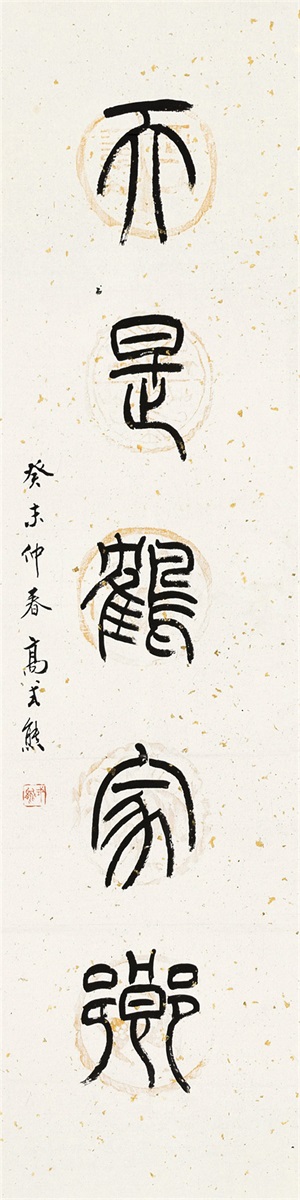 天是鶴家鄉
癸未仲春高式熊